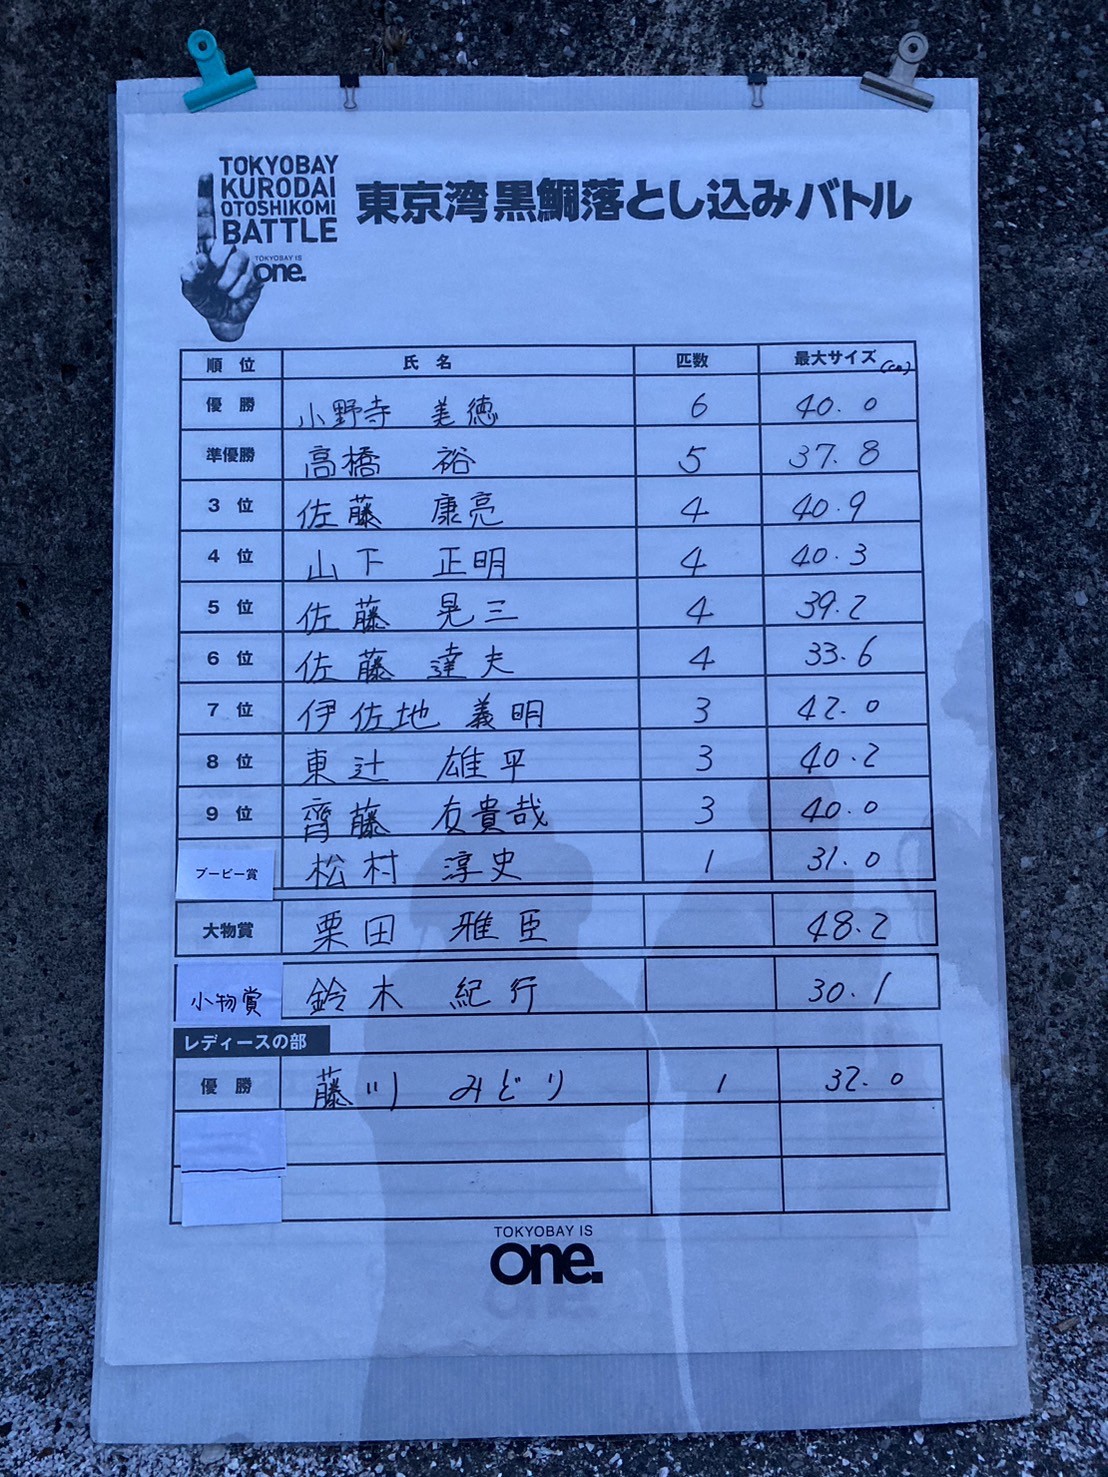 TOKYOBAY
KURODAI
OTOSHIKOMI
BATTLE
TOKYOBAY IS
one.
東京湾黒鯛落とし込みバトル
順 位 氏 名 匹数 最大サイズ(cm)
優 勝 小野寺 美徳 6 40.0
準優勝 高橋 裕 5 37.8
3 位 佐藤 康亮 4 40.9
4 位 山下 正明 4 40.3
5 位 佐藤 晃三 4 39.2
6 位 佐藤 達夫 4 33.6
7 位 伊佐地 義明 3 42.0
8 位 東辻 雄平 3 40.2
9 位 齊藤 友貴哉 3 40.0
ブービー賞 松村 淳史 1 31.0
大物賞 栗田 雅臣 48.2
小物賞 鈴木 紀行 30.1
レディースの部
優 勝 藤川 みどり 1 32.0
TOKYOBAY IS
one.